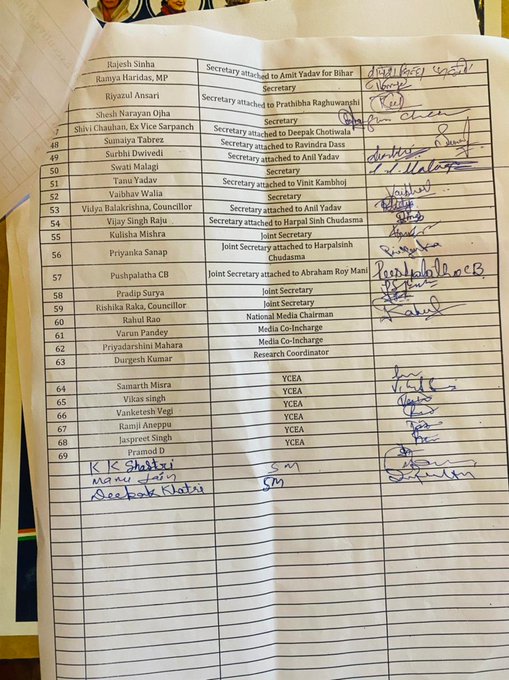 Rajesh Sinha Secretary attached to Amit Yadav for Bihar
Ramya Haridas, MP Secretary
Riyazul Ansari Secretary attached to Prathibha Raghuwanshi
Shesh Narayan Ojha Secretary
47 Shivi Chauhan, Ex Vice Sarpanch Secretary attached to Deepak Chotiwala
48 Sumaiya Tabrez Secretary attached to Ravindra Dass
49 Surbhi Dwivedi Secretary attached to Anil Yadav
50 Swati Malagi Secretary
51 Tanu Yadav Secretary attached to Vinit Kambhoj
52 Vaibhav Walia Secretary
53 Vidya Balakrishna, Councillor Secretary attached to Anil Yadav
54 Vijay Singh Raju Secretary attached to Harpal Sinh Chudasma
55 Kulisha Mishra Joint Secretary
56 Priyanka Sanap Joint Secretary attached to Harpalsinh
Chudasma
57 Pushpalatha CB Joint Secretary attached to Abraham Roy Mani Peeshpalatha CB
58 Pradip Surya Joint Secretary
59 Rishika Raka, Councillor Joint Secretary
60 Rahul Rao National Media Chairman Rahul
61 Varun Pandey Media Co-Incharge
62 Priyadarshini Mahara Media Co-Incharge
63 Durgesh Kumar Research Coordinator
64 Samarth Misra YCEA
65 Vikas singh YCEA
66 Vanketesh Vegi YCEA
67 Ramji Aneppu YCEA
68 Jaspreet Singh YCEA
69 Pramod D YCEA
K K Shastri SM
Manu Jain
Deepak Khatri SM